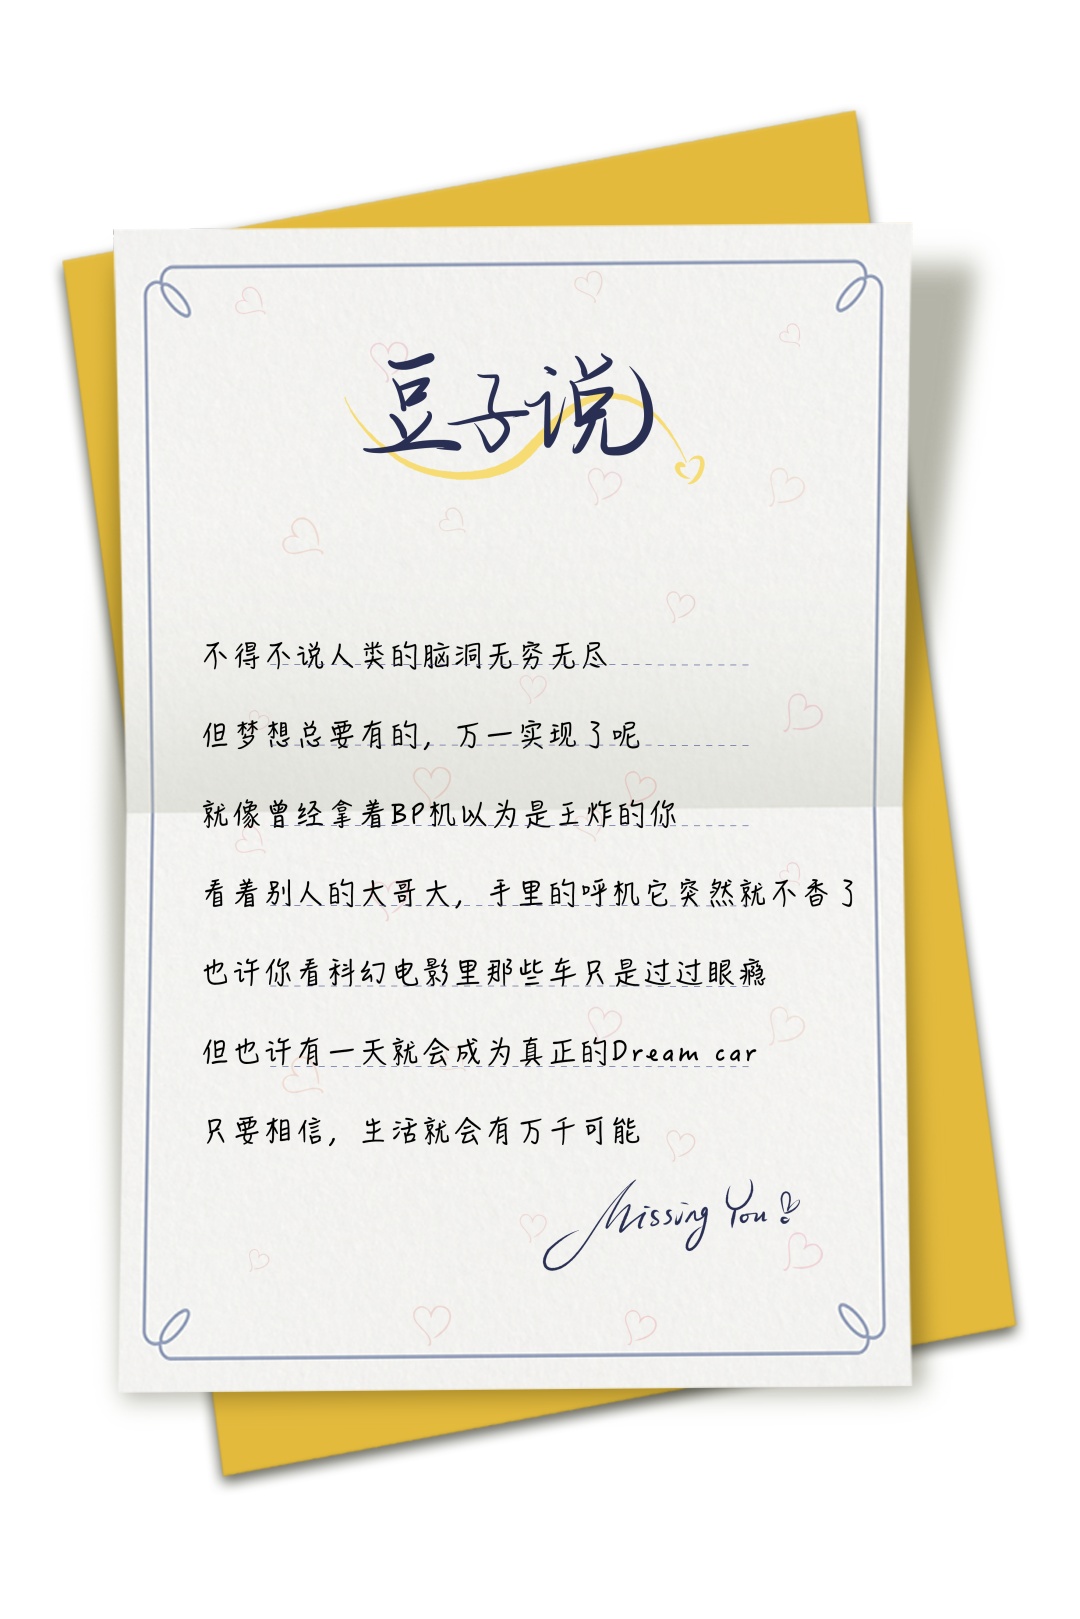 豆子说
不得不说人类的脑洞无穷无尽
但梦想总要有的，万一实现了呢
就像曾经拿着BP机以为是王炸的你
看着别人的大哥大，手里的呼机它突然就不香了
也许你看科幻电影里那些车只是过过眼瘾
但也许有一天就会成为真正的Dream car
只要相信，生活就会有万千可能
Missing You